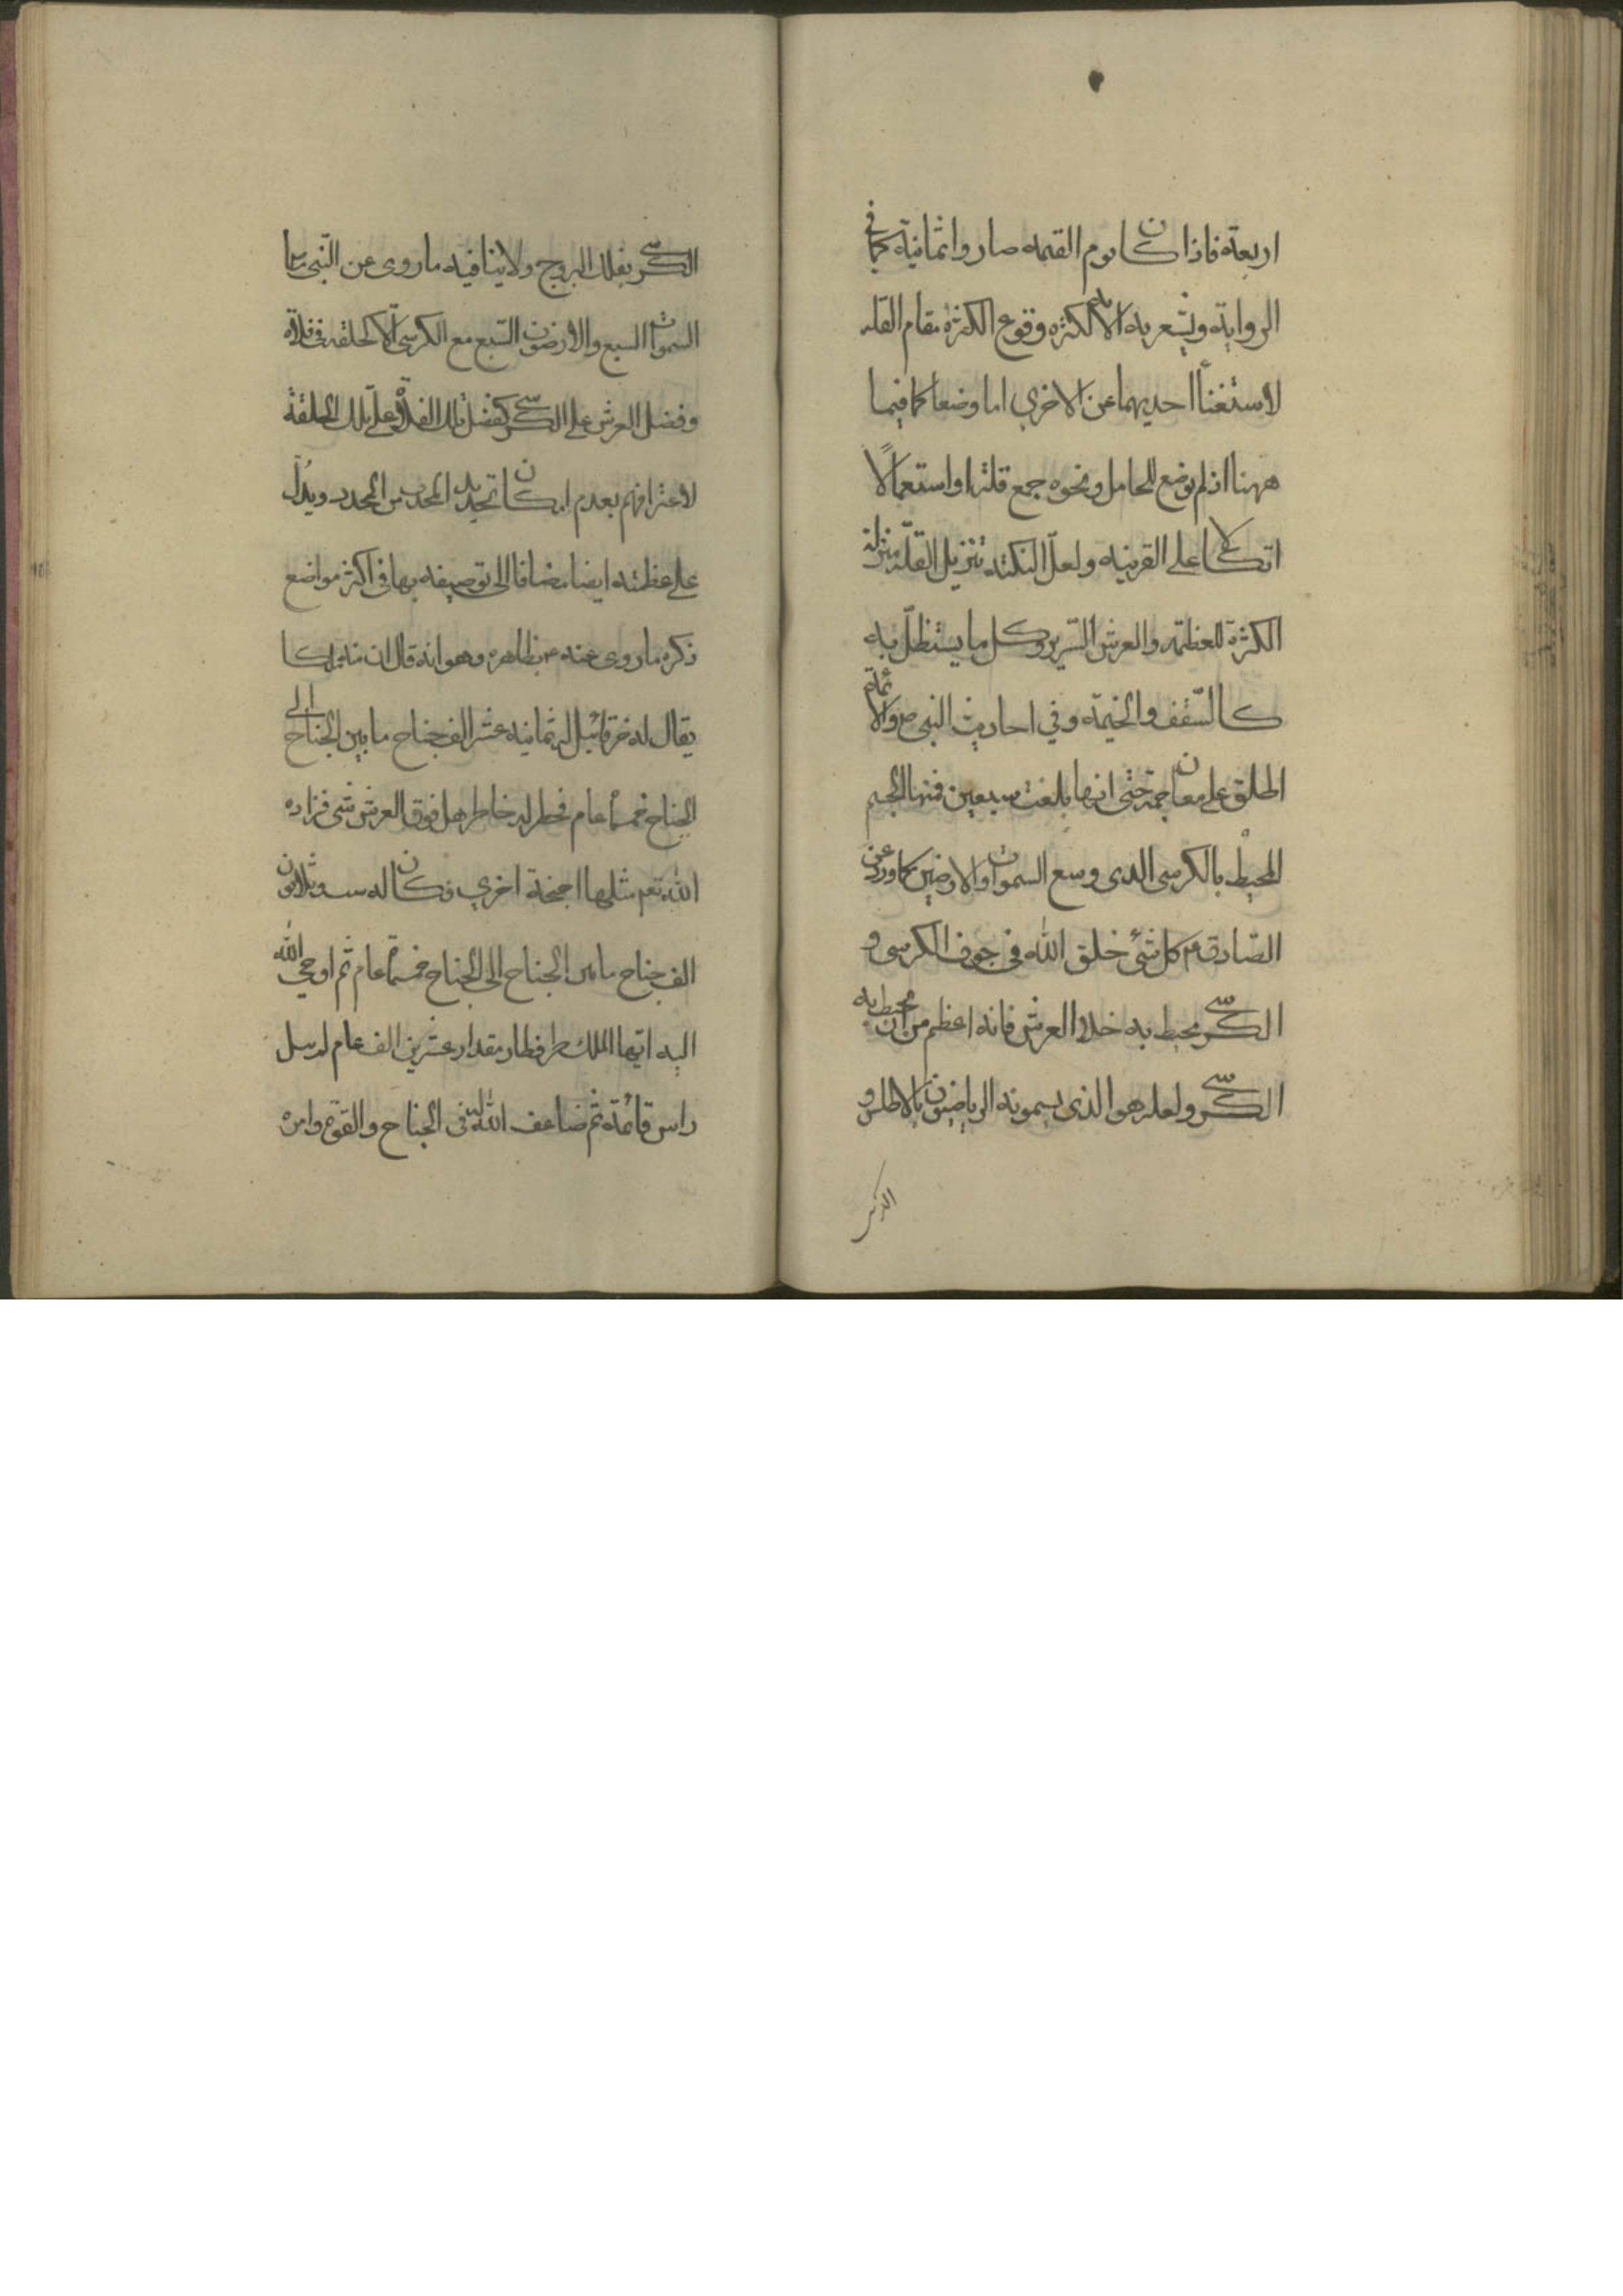 اربعة فاذا كان يوم القيمة صاروا ثمانية كما في
الرواية ويشعر به الاية لكثرة وقوع الكثرة مقام القلة
لاستغناء احديهما عن الاخرى اما وضعا كما فيما
ههنا اذ لم يوضع للحامل ونحوه جمع قلة او استعمالا
اتكالا على القرينة ولعل النكتة تنزيل القلة منزلة
الكثرة للعظمة والعرش السّرير وكل ما يستظلّ به
كالسّقف والخيمة وفي احاديث النبى ص والائمة
اطلق على معان جمة حتى انها بلغت سبعين فمنها الجسم
المحيط بالكرسى الذى وسع السموات والارضين كما ورد عن
الصّادق ع كل شئ خلق الله فى جوف الكرسى و
الكرسي محيط به خلا العرش فانه اعظم من ان يحيط به
الكرسي ولعله هو الذى يسمونه الرياضيون بالاطلس و
الكرسي بفلك البروج ولا ينافيه ما روى عن النّبى ص ما
السموات السبع والارضون السّبع مع الكرسى الا كحلقة فى فلاة
وفضل العرش على الكرسي كفضل تلك الفلاة على تلك الحلقة
لاعترافهم بعدم امكان تحديد المحدب من المحدد ويدلّ
على عظمته ايضا مضافا الى توصيفه بها فى اكثر مواضع
ذكره ما روى عنه ع بظاهره وهو انه قال ان لله ملكا
يقال له خرقائيل له ثمانية عشر الف جناح ما بين الجناح الى
الجناح خمسمأة عام فخطر له خاطر هل فوق العرش شى فزاده
الله تعم مثلها اجنحة اخرى فكان له ست وثلاثون
الف جناح ما بين الجناح الى الجناح خمسمأة عام ثم اوحى الله
اليه ايّها الملك طر فطار مقدار عشرين الف عام لم ينل
راس قائمة ثم ضاعف الله له فى الجناح والقوّة وامره